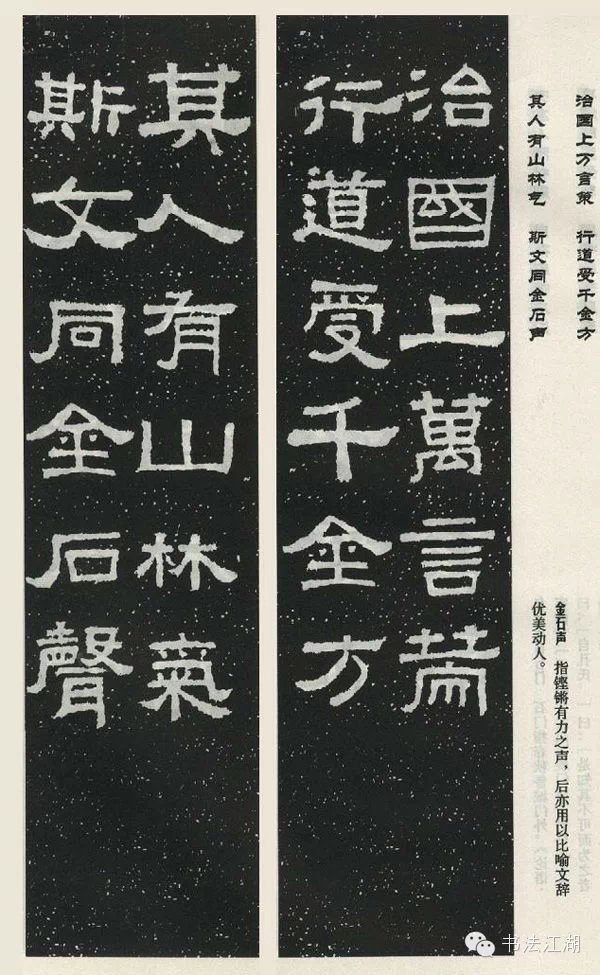 治国上万言策　行道受千金方
其人有山林气　斯文同金石声
金石声　指铿锵有力之声，后亦用以比喻文辞
优美动人。
治國上萬言策
行道受千金方
其人有山林氣
斯文同金石聲
书法江湖